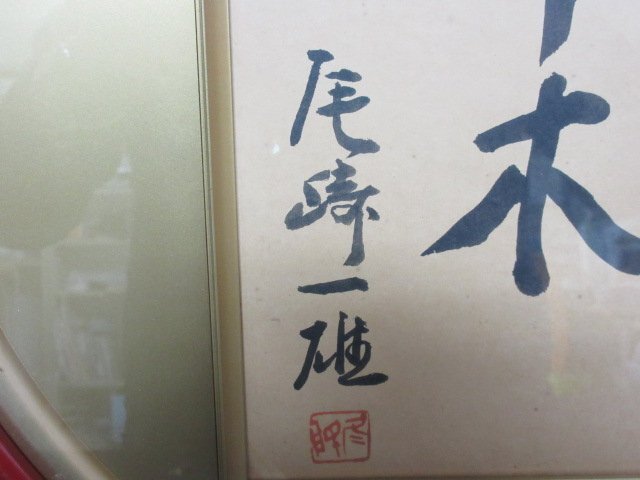 木
尾崎一雄